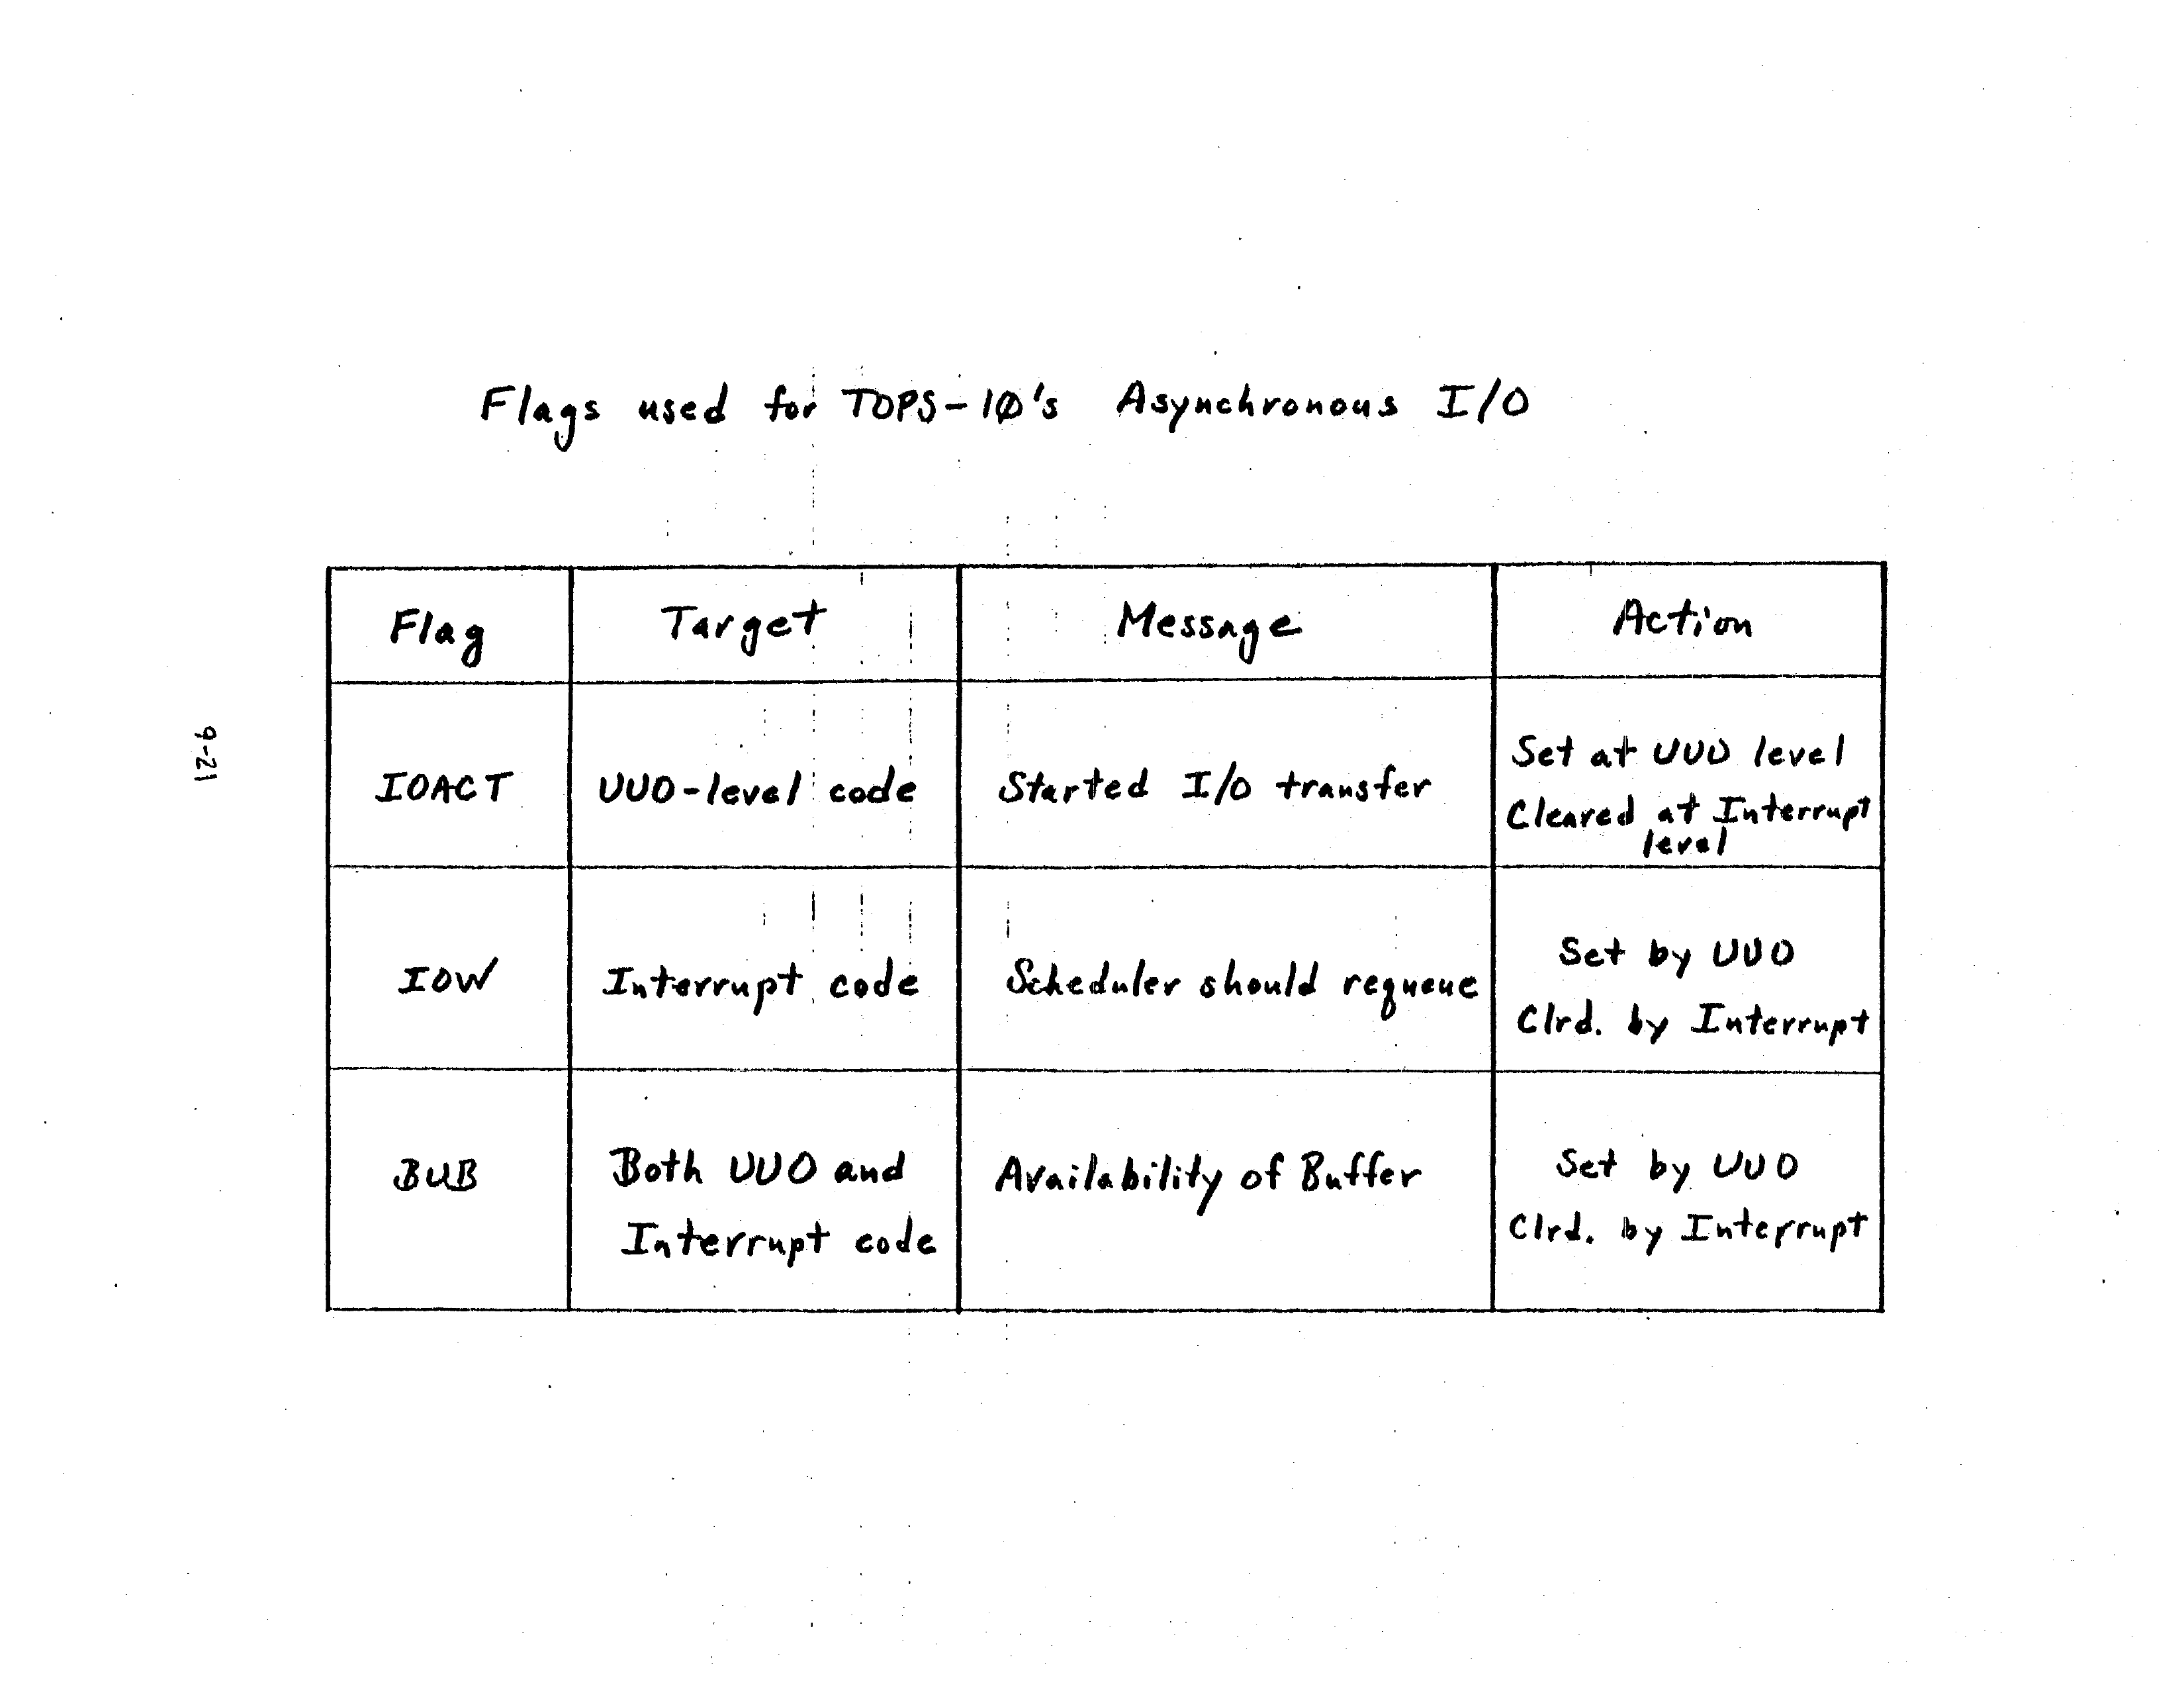 Flags used for TOPS-10's Asynchronous I/O
Flag Target Message Action
IOACT UUO-level code Started I/O transfer Set at UUO level
Cleared at Interrupt
level
IOW Interrupt code Scheduler should requeue Set by UUO
Clrd. by Interrupt
BUB Both UUO and
Interrupt code Availability of Buffer Set by UUO
Clrd. by Interrupt
9-21